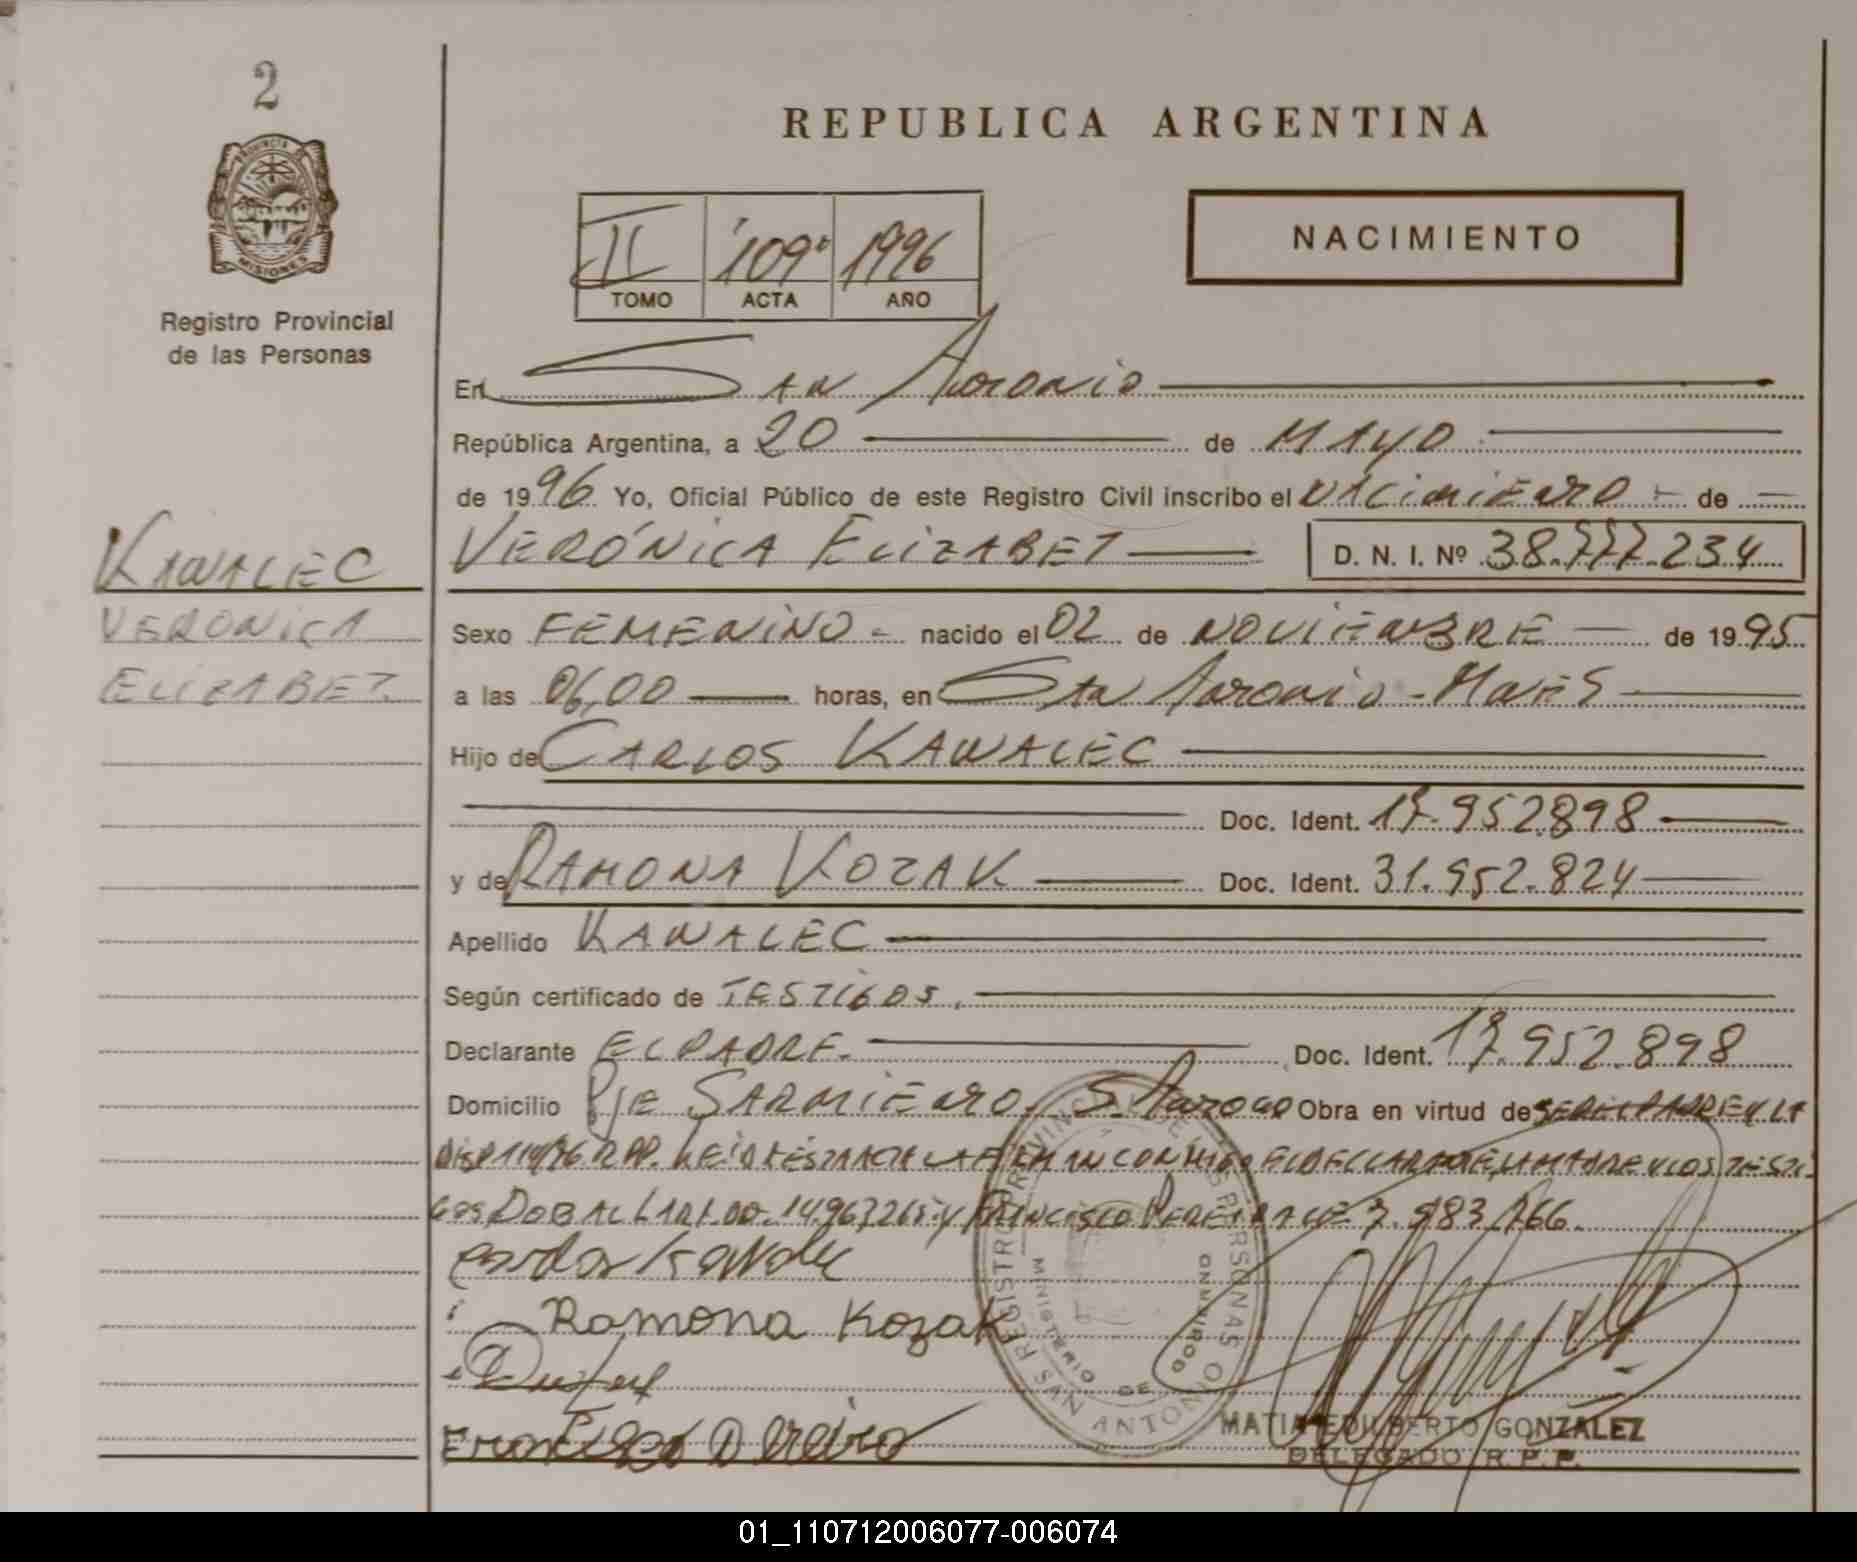 2
REPUBLICA ARGENTINA
PROVINCIA DE
MISIONES
Registro Provincial
de las Personas
II 109 1996
TOMO ACTA AÑO
NACIMIENTO
En San Antonio
República Argentina, a 20 de MAYO
de 1996 Yo, Oficial Público de este Registro Civil inscribo el NACIMIENTO de
KAWALEC
VERONICA
ELIZABET
VERÓNICA ELIZABET D. N. I. Nº 38.777.234
Sexo FEMENINO nacido el 02 de NOVIEMBRE de 1995
a las 06,00 horas, en San Antonio - Mnes
Hijo de CARLOS KAWALEC
Doc. Ident. 17.952.898
y de RAMONA KOZAK Doc. Ident. 31.952.824
Apellido KAWALEC
Según certificado de TESTIGOS.
Declarante EL PADRE. Doc. Ident. 17.952.898
Domicilio Pje SARMIENTO. S. Antonio Obra en virtud de SER EL PADRE Y LA
DISP 114/96 RPP. LEIDA ESTA ACTA LA FIRMAN CONMIGO EL DECLARANTE, LA MADRE Y LOS TESTI
GOS 14963265 y FRANCISCO PEREIRA
Ramona Kozak
Francisco Pereira
REGISTRO PROVINCIAL DE LAS PERSONAS
MINISTERIO DE GOBIERNO
SAN ANTONIO
MATIAS EDILBERTO GONZALEZ
DELEGADO R. P. P.
01_110712006077-006074